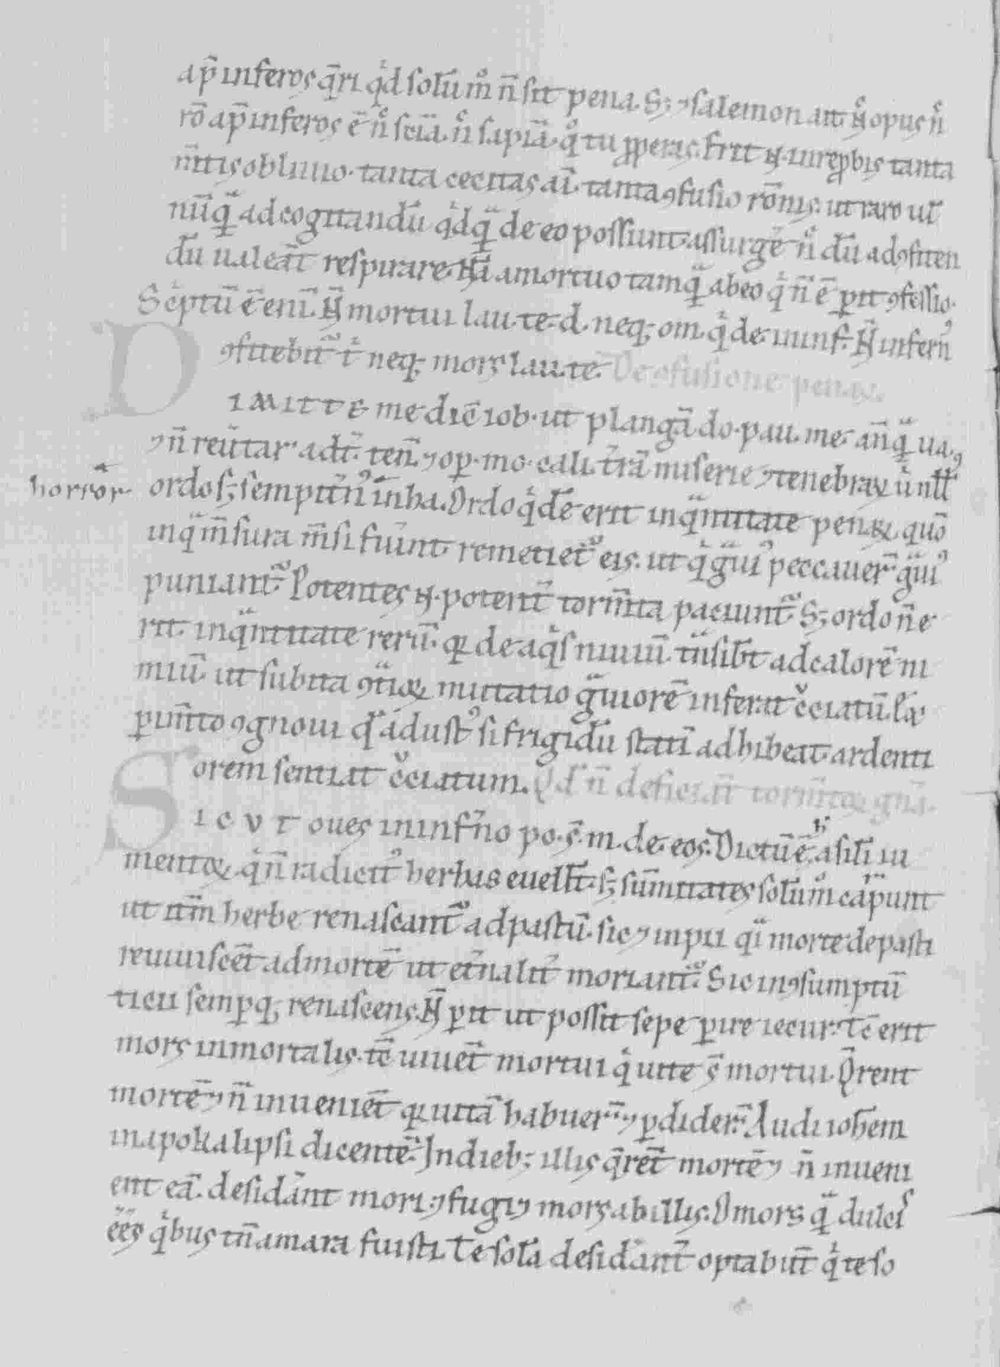 ap̄ inferos q̄ri qͥd solū mͦ n̄ sit pena. S; ⁊ salemon ait. Nͨ opus nͨ
rō ap̄ inferos ē nͨ sciā. nͨ sapiā. qͦ tu pperas. Erit N. in rep̱bis tanta
m̄tis obliuio. tanta cecitas aī. tanta ꝯfusio rōnis. ut raro ul̄
nūqᵃ ad cogitandū qͥdqᵃ de eo possiunt assurgē nͨ dū ad ꝯfiten
dū ualeāt respirare. Nā a mortuo tamqᵃ ab eo qͥ n̄ ē ꝑit ꝯfessio.
Scͥptū ē eni. N̄ mortui lau. te. d. neq; om. qͥ de. in inf. N̄ infern᷒
ꝯfitebit᷑ tͥ neq; mors lau. te. De ꝯfusione penaꝝ.
DIMITTE me dic̄ iob. ut plangā do. pau. me. an̄qᵃ ua.
⁊ n̄ reūtar ad t̄. ten̄. ⁊ op. mo. cali. t̄rā miserie ⁊ tenebraꝝ ū nll᷒
horror
ordo s; sempit̄n᷒ in̄ha. Ordo qͥdē erit in qᵃntitate penaꝝ. quō
in qᵃ m̄sura m̄si fūint remetiet᷑ eis. ut qͥ gᵃui᷒ peccauer̄ gᵃui᷒
puniant᷑. Potentes N. potent̄ torm̄ta paciunt᷑. S; ordo n̄ e
rit. in qᵃntitate rerū. qꝛ de aqͥs niuiū tn̄sibt̄ ad calorē ni
miū. ut subita ꝯtͥoꝝ mutatio gᵃuiorē inferat cͨciatū. Lꝫ
ꝑ pun̄to ꝯgnoui qᵈ adust᷒ si frigidū statī adhibeat. ardenti
orem sentiat cͨciatum. Qd n̄ deficiāt torm̄toꝝ gn̄a.
SICVT oues in inf̄no po. s̄. m. de. eos. Dictū ē. hͨ a sil̄i iu
mentoꝝ. qͥ n̄ radicit᷒ herbas euellt̄. s; sūmitates solūͦ cāpunt
ut itm̄ herbe renascant᷑ ad pastū. sic ⁊ inpii qᵃi morte depasti
reuiuiscēt ad mortē ut et̄nalit̄ moriant᷑. Sic in ꝯsumptū
ticii semꝑq; renascens. N̄ ꝑit ut possit sepe ꝑire iecur. Tc̄ erit
mors inmortalis. tc̄ uiuēt mortui qͥ uite s̄ mortui. Q̄rent
mortē ⁊ n̄ inuenīet qꝛ uitā habuer̄ ⁊ ꝑdider̄. Audi ioh̄em
in apokalipsi dicentē. Indieb; illis q̄rēt mortē ⁊ n̄ inueni
ent eā. desidānt mori. ⁊ fugi⁊ mors ab illis. O mors qᵃ dulcis
ēēs qͥbus tn̄ amara fuisti. Te solā desidānt optabūt qͥ te so